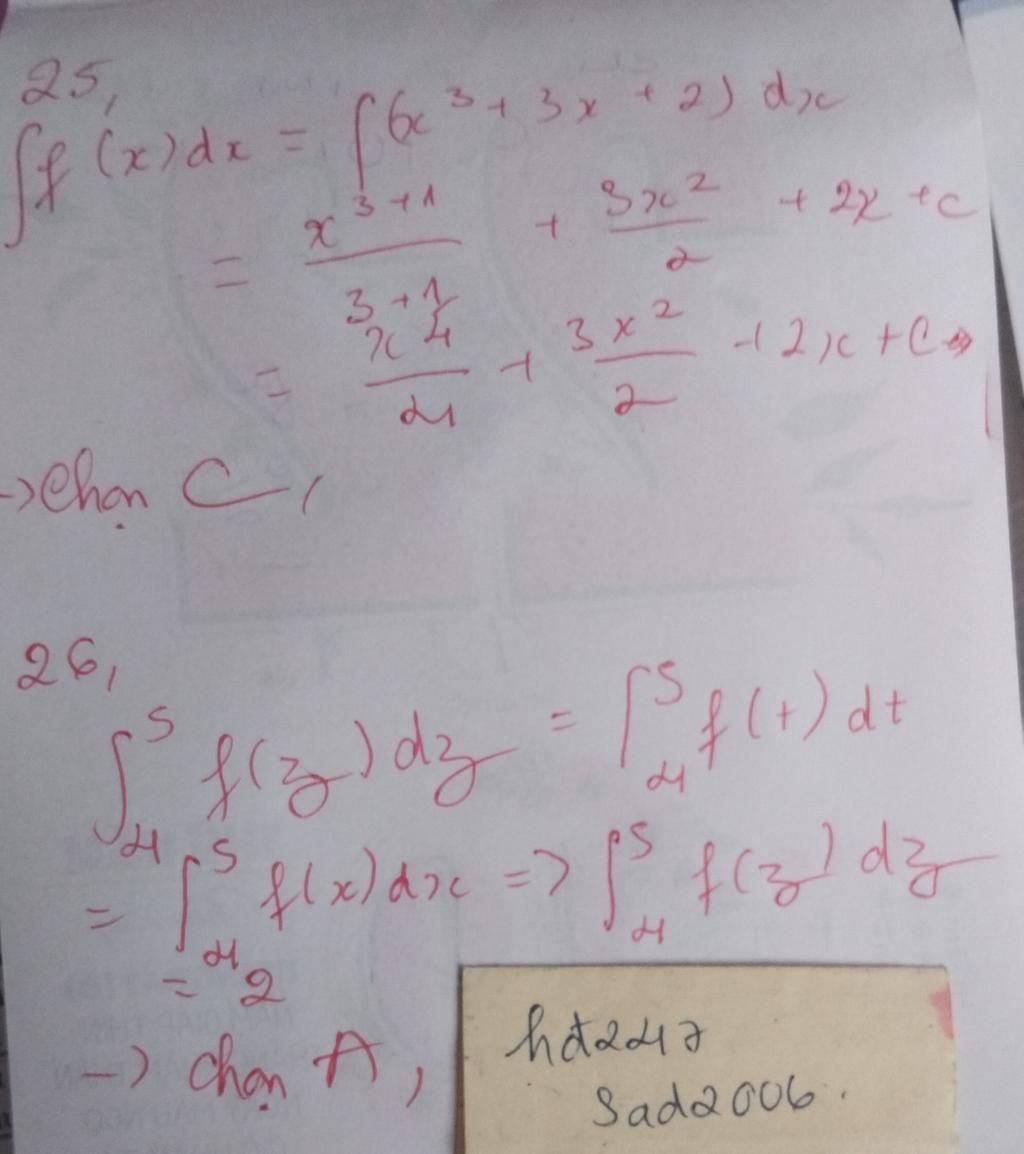 25,
∫f(x)dx = ∫(x³ + 3x + 2) dx
= x³⁺¹/3+1 + 3x²/2 + 2x + c
= x⁴/4 + 3x²/2 + 2x + C
→ Chọn C,
26,
∫₄⁵ f(z) dz = ∫₄⁵ f(t) dt
= ∫₄⁵ f(x) dx => ∫₄⁵ f(z) dz
= 2
→ Chọn A,
hd247
Sad2006.